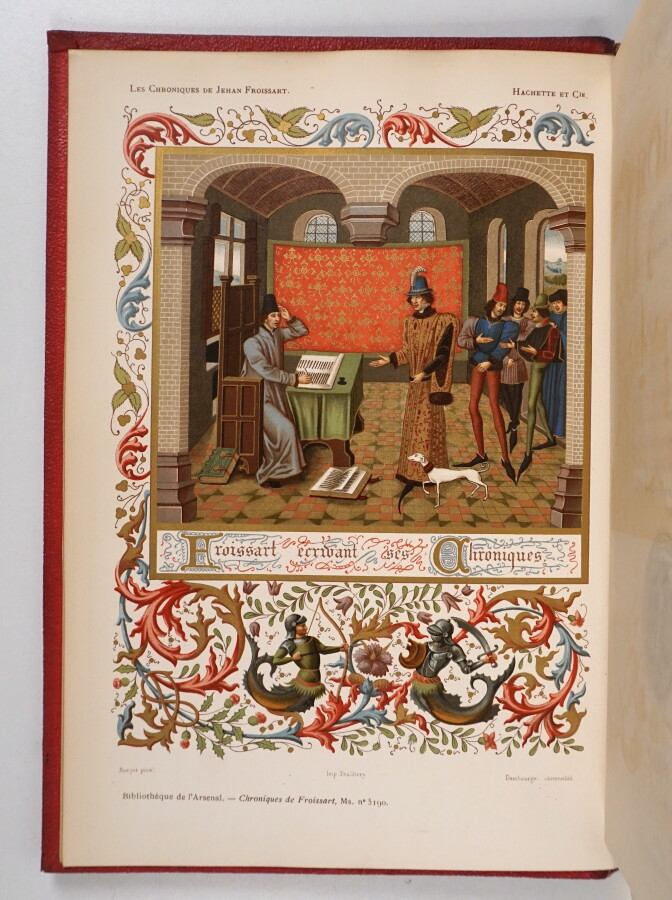 LES CHRONIQUES DE JEHAN FROISSART.
HACHETTE ET CIE.
Froissart écrivant ses Chroniques.
Imp. Draeger
Bibliothèque de l'Arsenal. — Chroniques de Froissart, Ms. nº 5190.